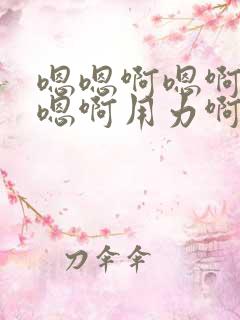 嗯嗯啊嗯啊
嗯啊用力啊
刀伞伞